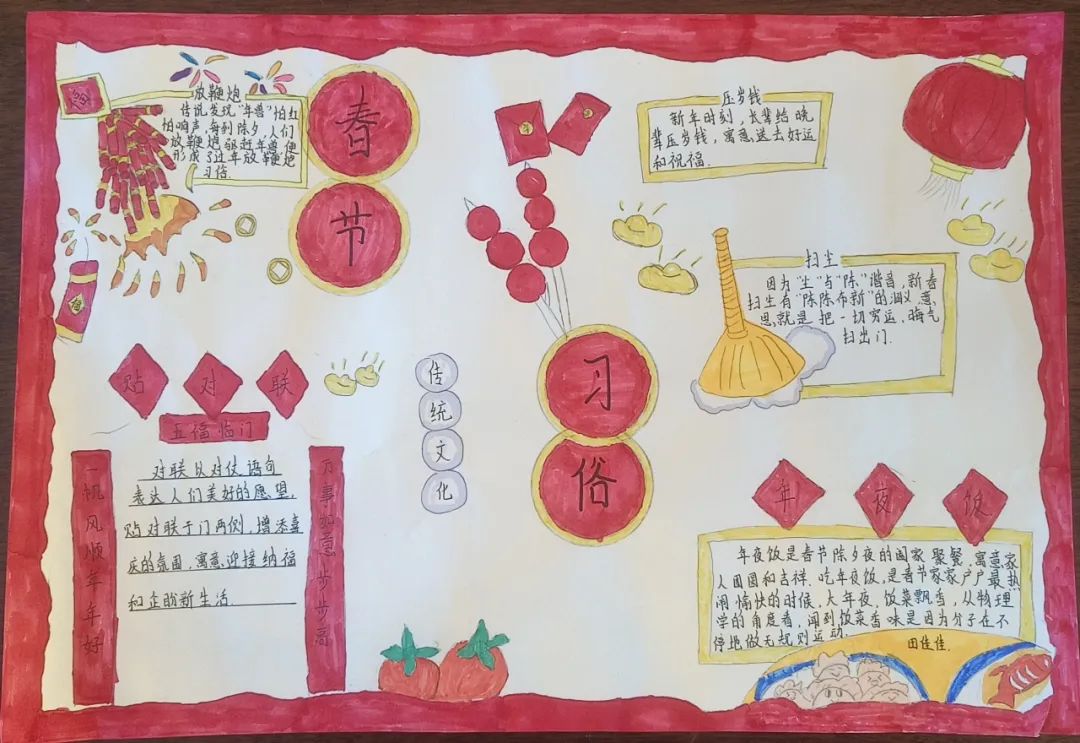 福
放鞭炮
传说发现"年兽"怕红
怕响声，每到除夕，人们
放鞭炮驱赶年兽便
形成了过年放鞭炮
习俗.
春
节
压岁钱
新年时刻，长辈给晚
辈压岁钱，寓意送去好运
和祝福.
扫尘
因为"尘"与"陈"谐音，新春
扫尘有"陈陈布新"的涵义意
思，就是把一切穷运、晦气
扫出门.
贴对联
五福临门
一帆风顺年年好
对联以对仗语句
表达人们美好的愿望.
贴对联于门两侧，增添喜
庆的氛围，寓意迎接纳福
和企盼新生活
万事如意步步高
传
统
文
化
习
俗
年夜饭
年夜饭是春节除夕夜的阖家聚餐，寓意家
人团圆和吉祥.吃年夜饭，是春节家家户户最热
闹愉快的时候，大年夜，饭菜飘香，从物理
学的角度看，闻到饭菜香味是因为分子在不
停地做无规则运动.
田佳佳.